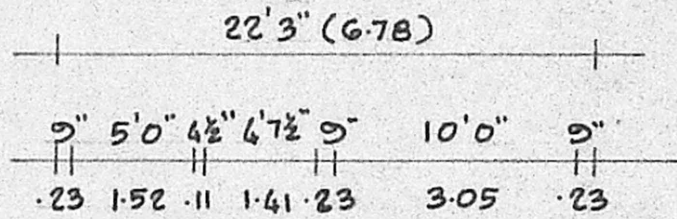 22'3" (6.78)
9" 5'0" 4½" 4'7½" 9" 10'0" 9"
.23 1.52 .11 1.41 .23 3.05 .23